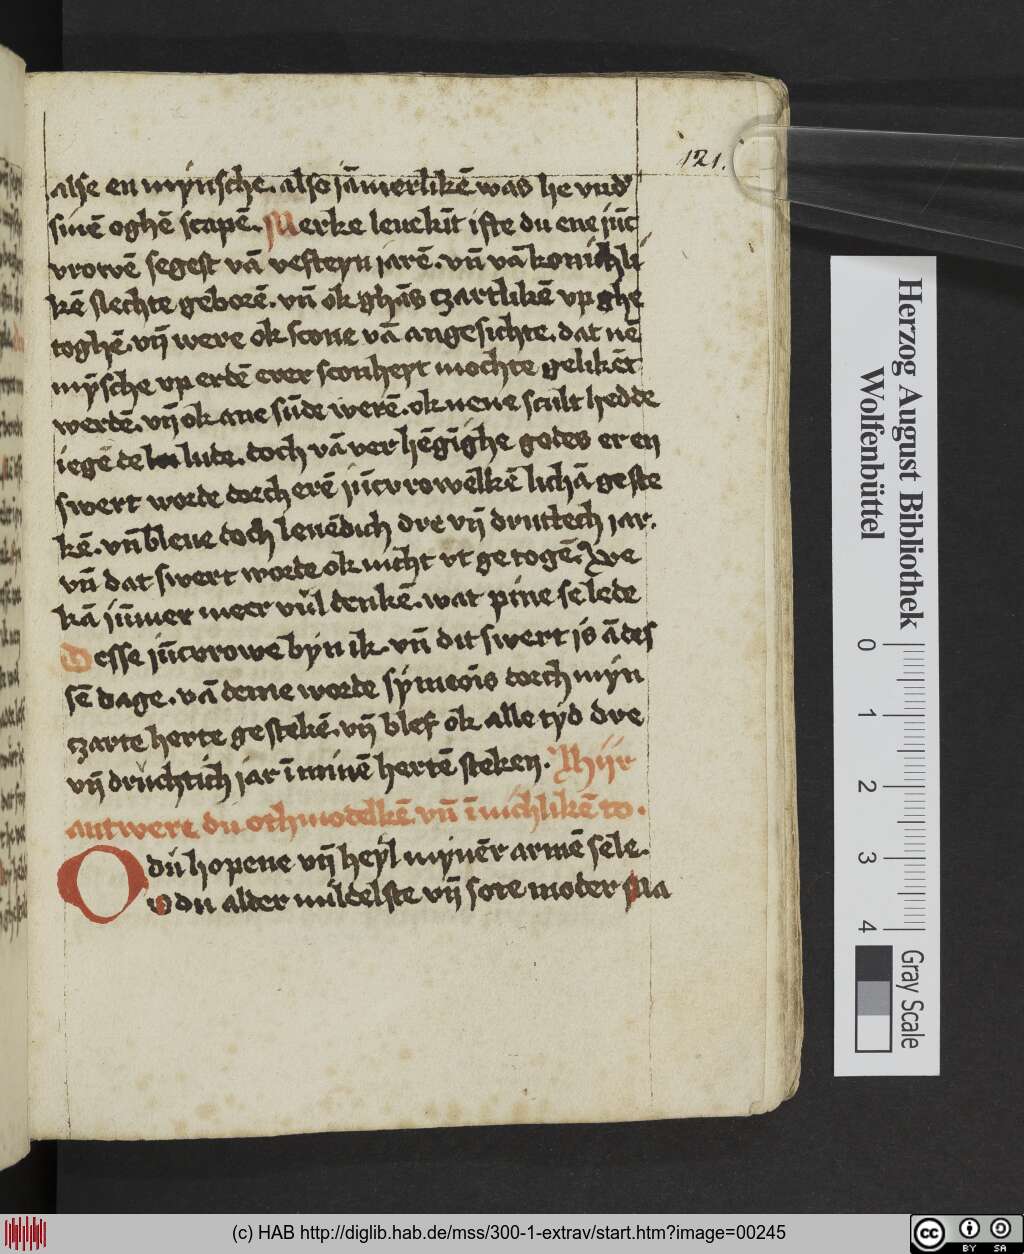 121.
alse en mynsche. also iāmerlikē was he vnđ
sinē oghē scapē. Merke leuekīt ifte du ene jūc
vrowē segest vā vefteyn jarē. vn̄ vā konichli
kē slechte geborē. vn̄ ok ghās czartlikē vp ghe
toghē. vn̄ were ok scone vā angesichte. dat nē
mȳsche vp erdē erer sconheyt mochte gelikēt
werdē. vn̄ ok ane sūde werē. ok nene scult hedde
iegē de lude. doch vā verhēgīghe godes er en
swert worde dorch erē jūcvrowelkē lichā geste
kē. vn̄ bleue doch leuēdich dre vn̄ druttech jar.
vn̄ dat swert worde ok nicht vt getogē. We
kā jūmer meer vul denkē. wat pine se lede
Desse jūcvrowe byn ik. vn̄ dit swert is ādes
sē dage. vā deme worde symeōis dorch myn
czarte herte gestekē. vn̄ blef ok alle tyd dre
vn̄ druchtich jar ī minē hertē steken. Hyir
antwert du othmodelkē vn̄ īnichlikē to.
O du hopene vn̄ heyl mynēr armē sele.
O du alder mildelste vn̄ sote moder Ma
Herzog August Bibliothek
Wolfenbüttel
0 1 2 3 4
Gray Scale
(c) HAB http://diglib.hab.de/mss/300-1-extrav/start.htm?image=00245
cc BY SA